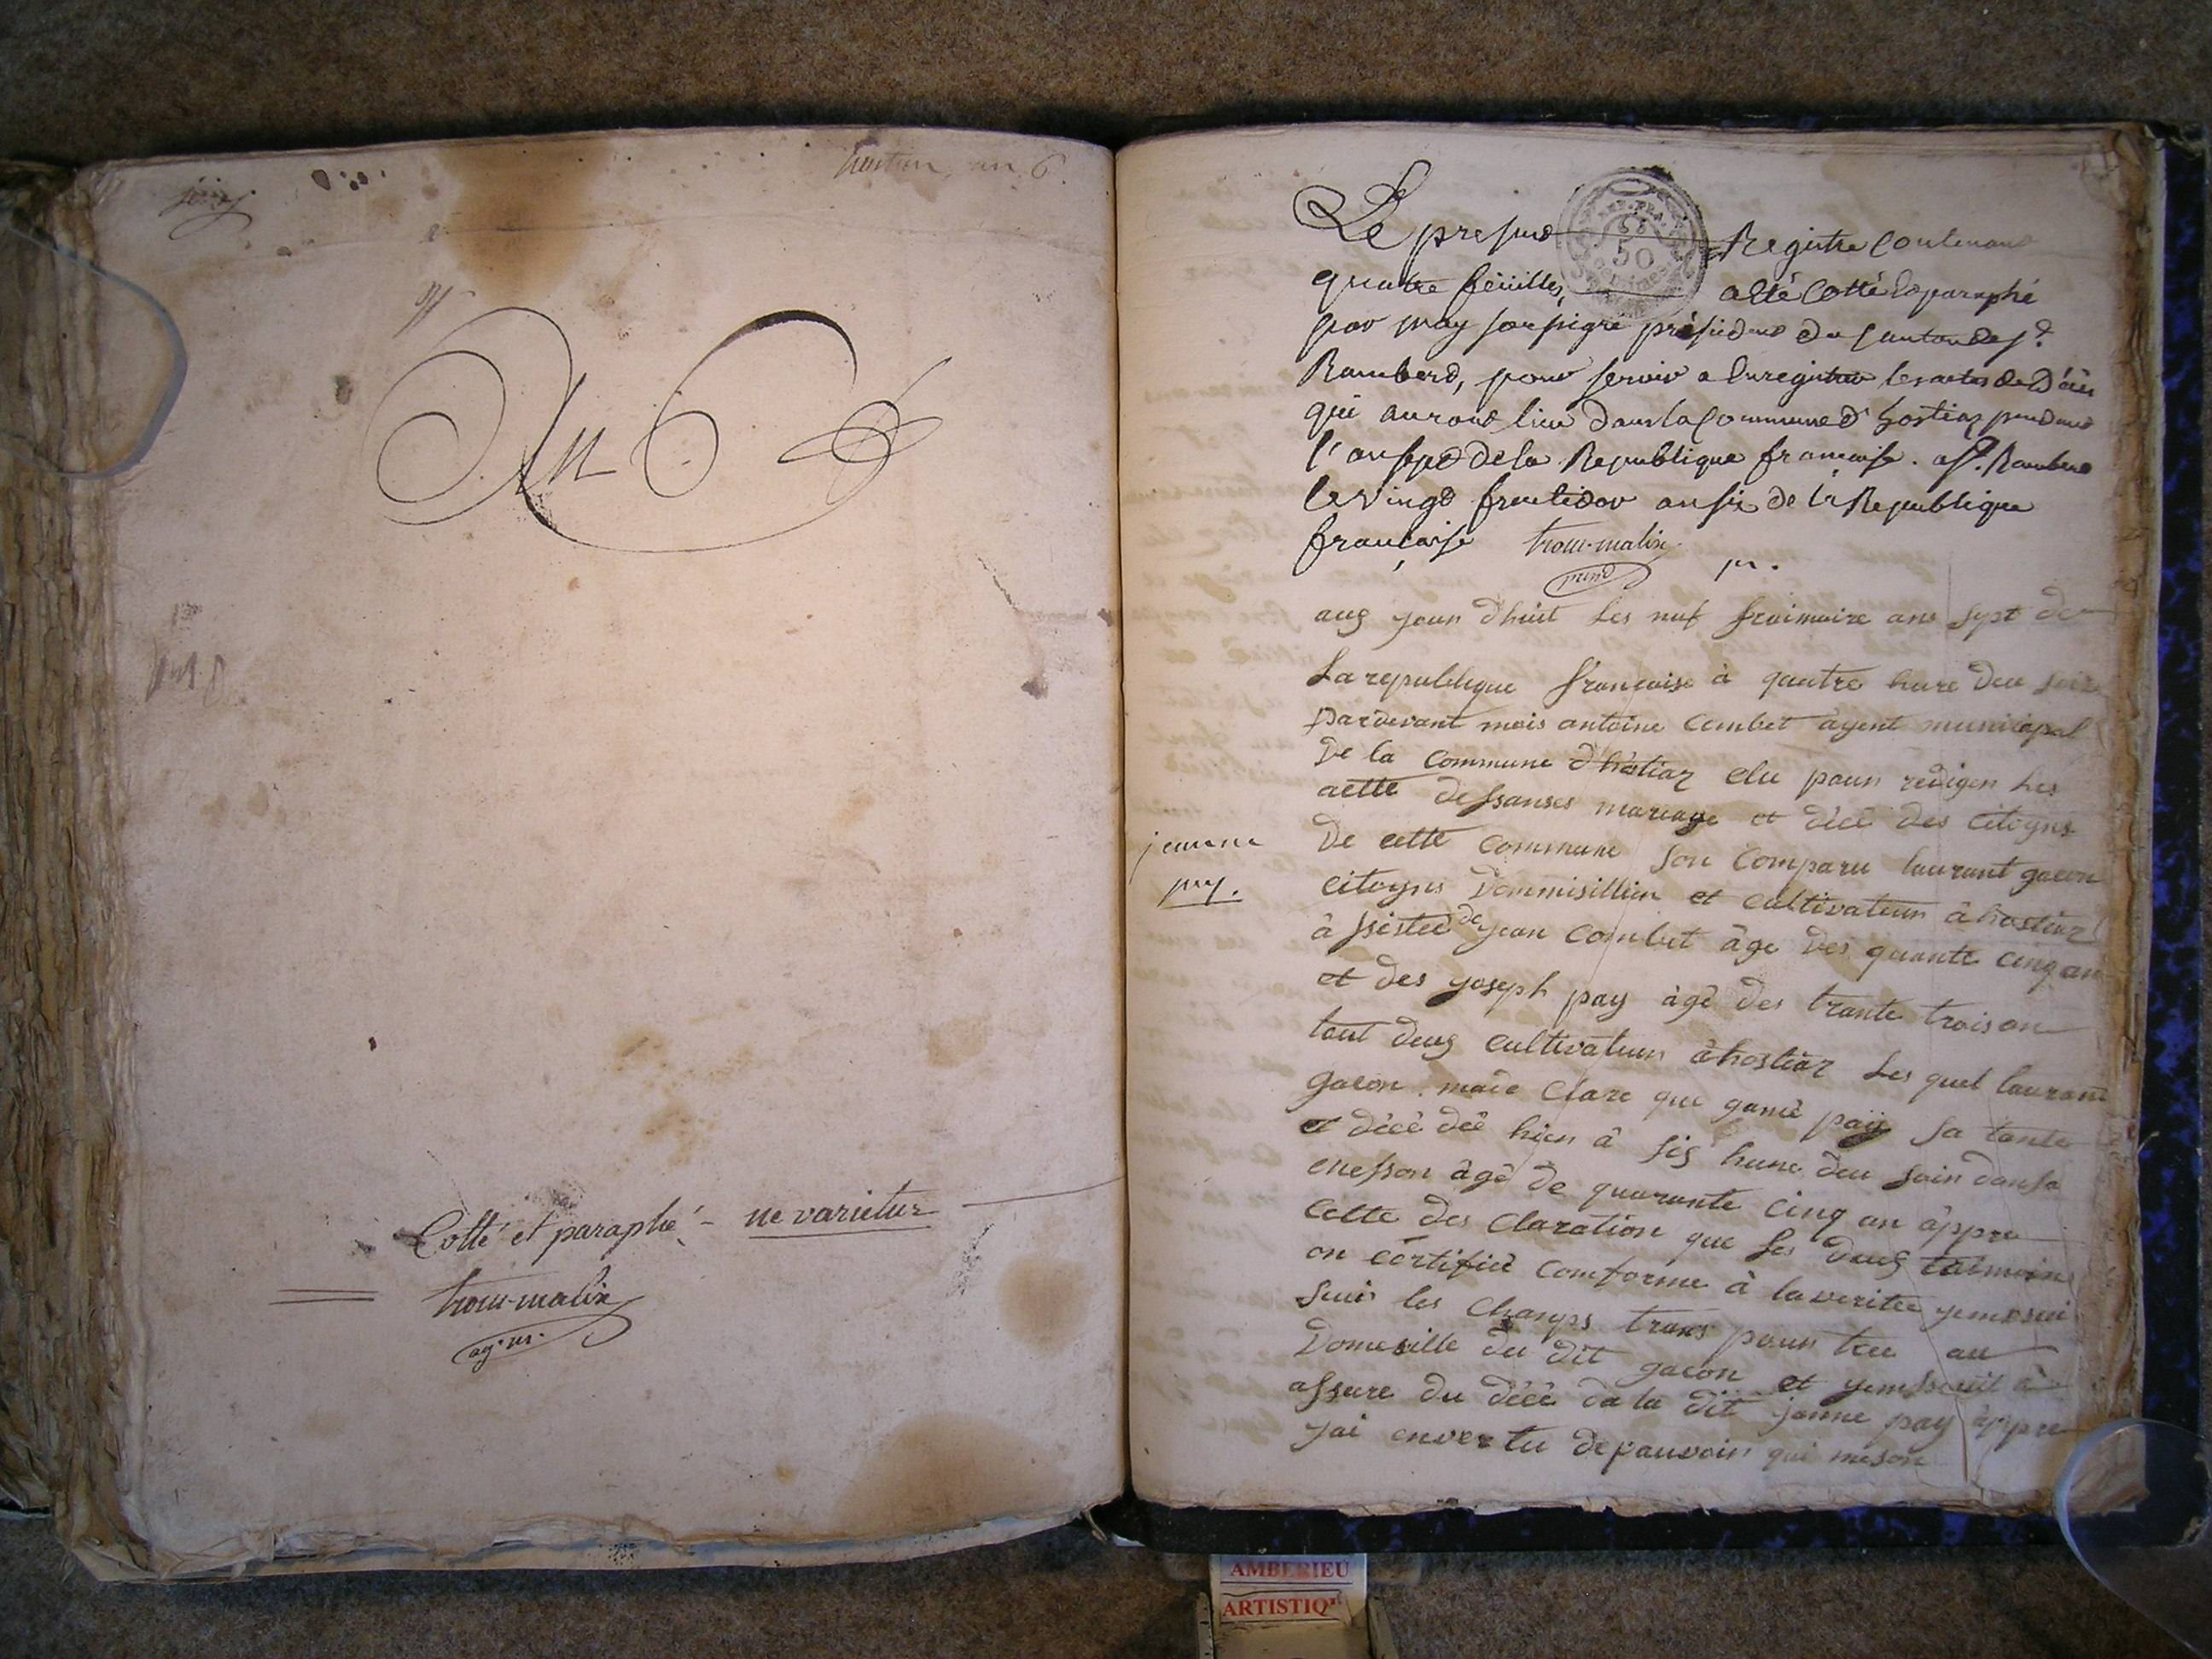 an 6.
An 6
Cotté et paraphé - ne varietur
trocu-malin
ag. m.
REP. FRA.
50
centimes
Le present Registre Contenant
quatre feuilles, a été Cotté & paraphé
par moy soussigné président du Canton de St.
Rambert, pour servir a Enregistrer les actes de Décès
qui auront lieu dans la Commune d'hostiaz pendant
l'an sept de la Republique française. a St. Rambert
le vingt fructidor an six de la Republique
française trocu-malin
aug jour dhuit les nuf frimaire ans sept de
La republique françoise à quatre hure deu soir
pardevant mois antoine Combet agent municipal
De la Commune d'hostiaz elu poun redigen les
aette dessanses mariage et décê des citoyns
De cette Commune son comparu laurant gacon
jeanne
pey.
citoyns dommisillien et cultivateun à hostiaz
à ssistée de yean Combet âge des quante cinq an
et des yoseph pay àgê des trante trois an
tout deug cultivateun à hostiaz Les quel laurant
gacon made Clare que ganne paÿ sa tante
et décè dêê hien â sis hune deu soin dans sa
messon âgê de quarante cinq an âppre
cette des Claration que les deug talmoin
on certifiée comforme à la veritée yemesui
sui les Champs trans poun teu au
Domesille du dit gacon et
assure du décê da la dit janne pay âppre
jai envertu de pauvoin qui meson
AMBERIEU
ARTISTIQ